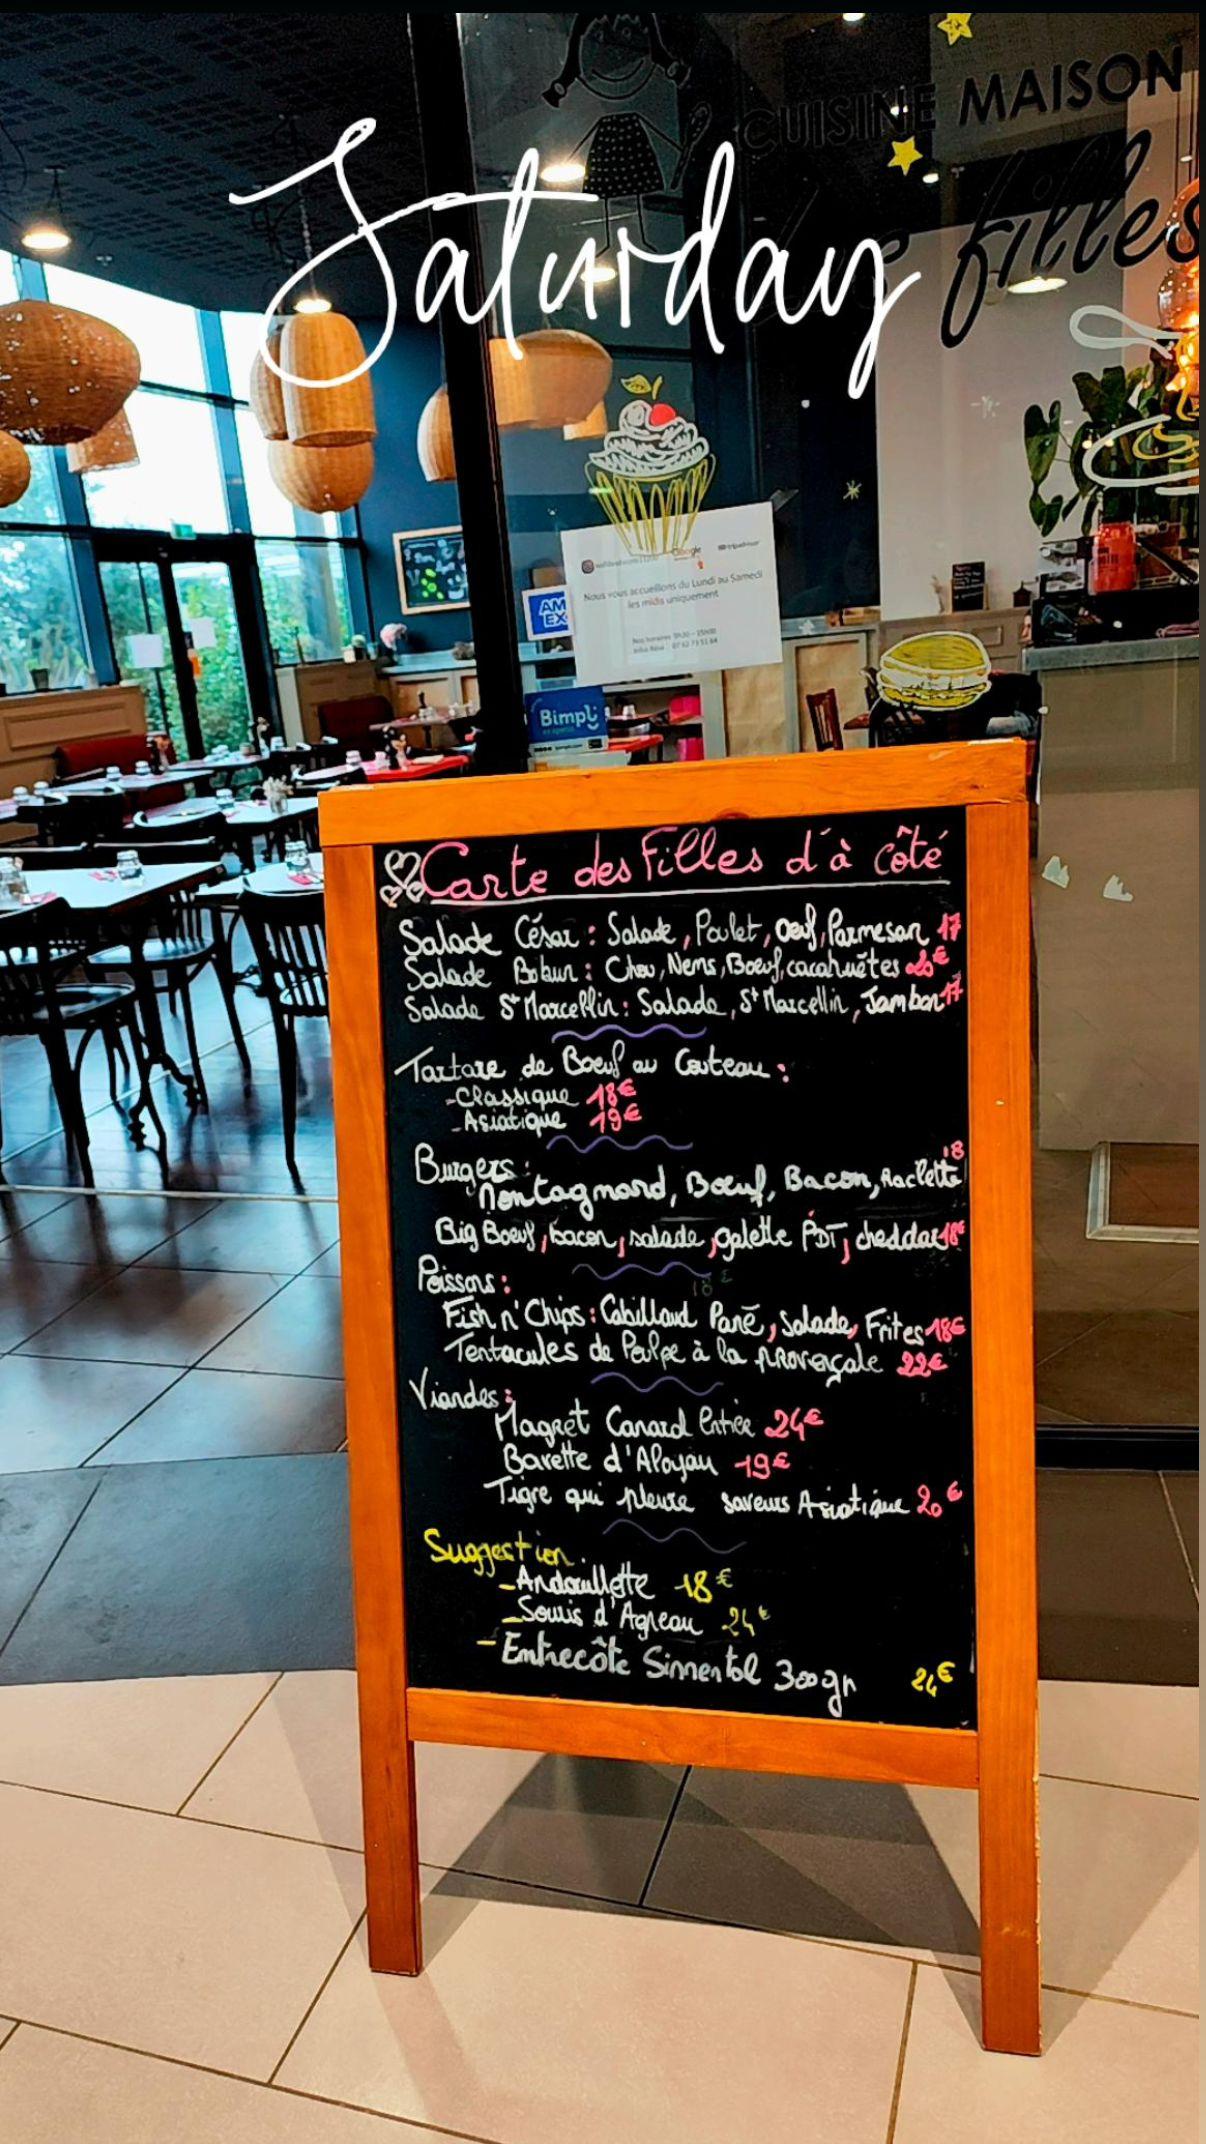 Saturday
CUISINE MAISON
filles
Google
tripadvisor
Nous vous accueillons du Lundi au Samedi
les midis uniquement
Nos horaires 9h30 - 15h00
07 62 73 51 64
AM
EX
Bimpli
Carte des Filles d'à côté
Salade César : Salade, Poulet, Oeuf, Parmesan 17
Salade Bobun : Chou, Nems, Boeuf, cacahuètes 20€
Salade St Marcellin : Salade, St Marcellin, Jambon 17
Tartare de Boeuf au Couteau :
- Classique 18€
- Asiatique 19€
Burgers :
Montagnard, Boeuf, Bacon, Raclette 18
Big Boeuf, bacon, salade, galette PDT, cheddar 18€
Poissons :
Fish n' Chips : Cabillaud Pané, Salade, Frites 18€
Tentacules de Poulpe à la provençale 22€
Viandes :
Magret Canard Entier 24€
Bavette d'Aloyau 19€
Tigre qui pleure saveurs Asiatique 20€
Suggestion.
- Andouillette 18€
- Souris d'Agneau 24€
- Entrecôte Simental 300gr 24€